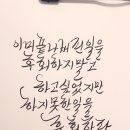 이미 끝나버린 일을
후회하지 말고
하고 싶었지만
하지 못한 일을
후회하라